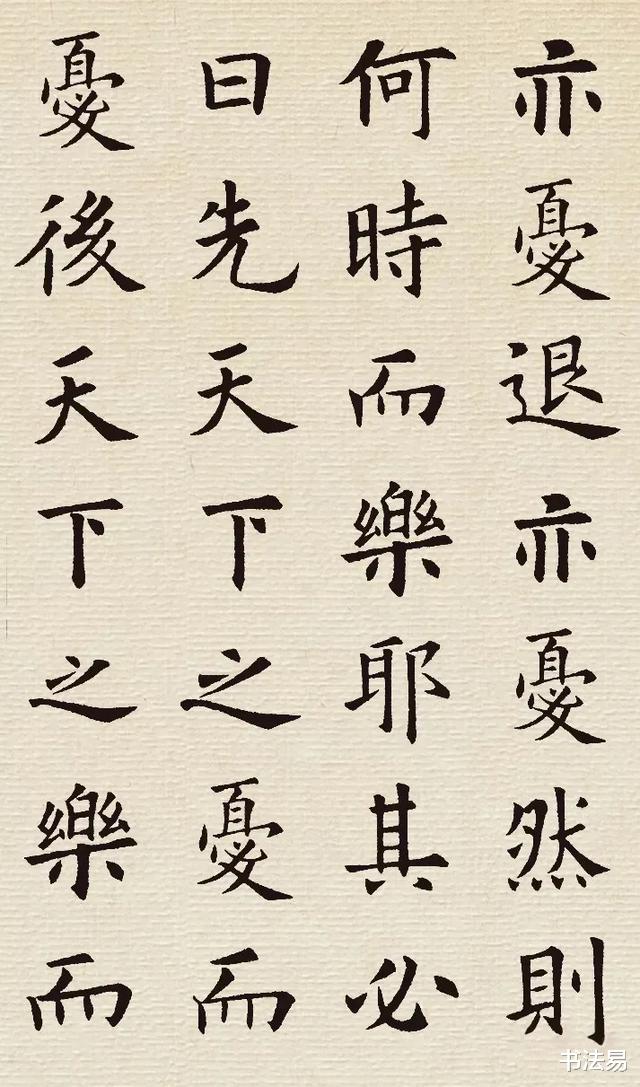 亦憂退亦憂然則
何時而樂耶其必
曰先天下之憂而
憂後天下之樂而
书法易